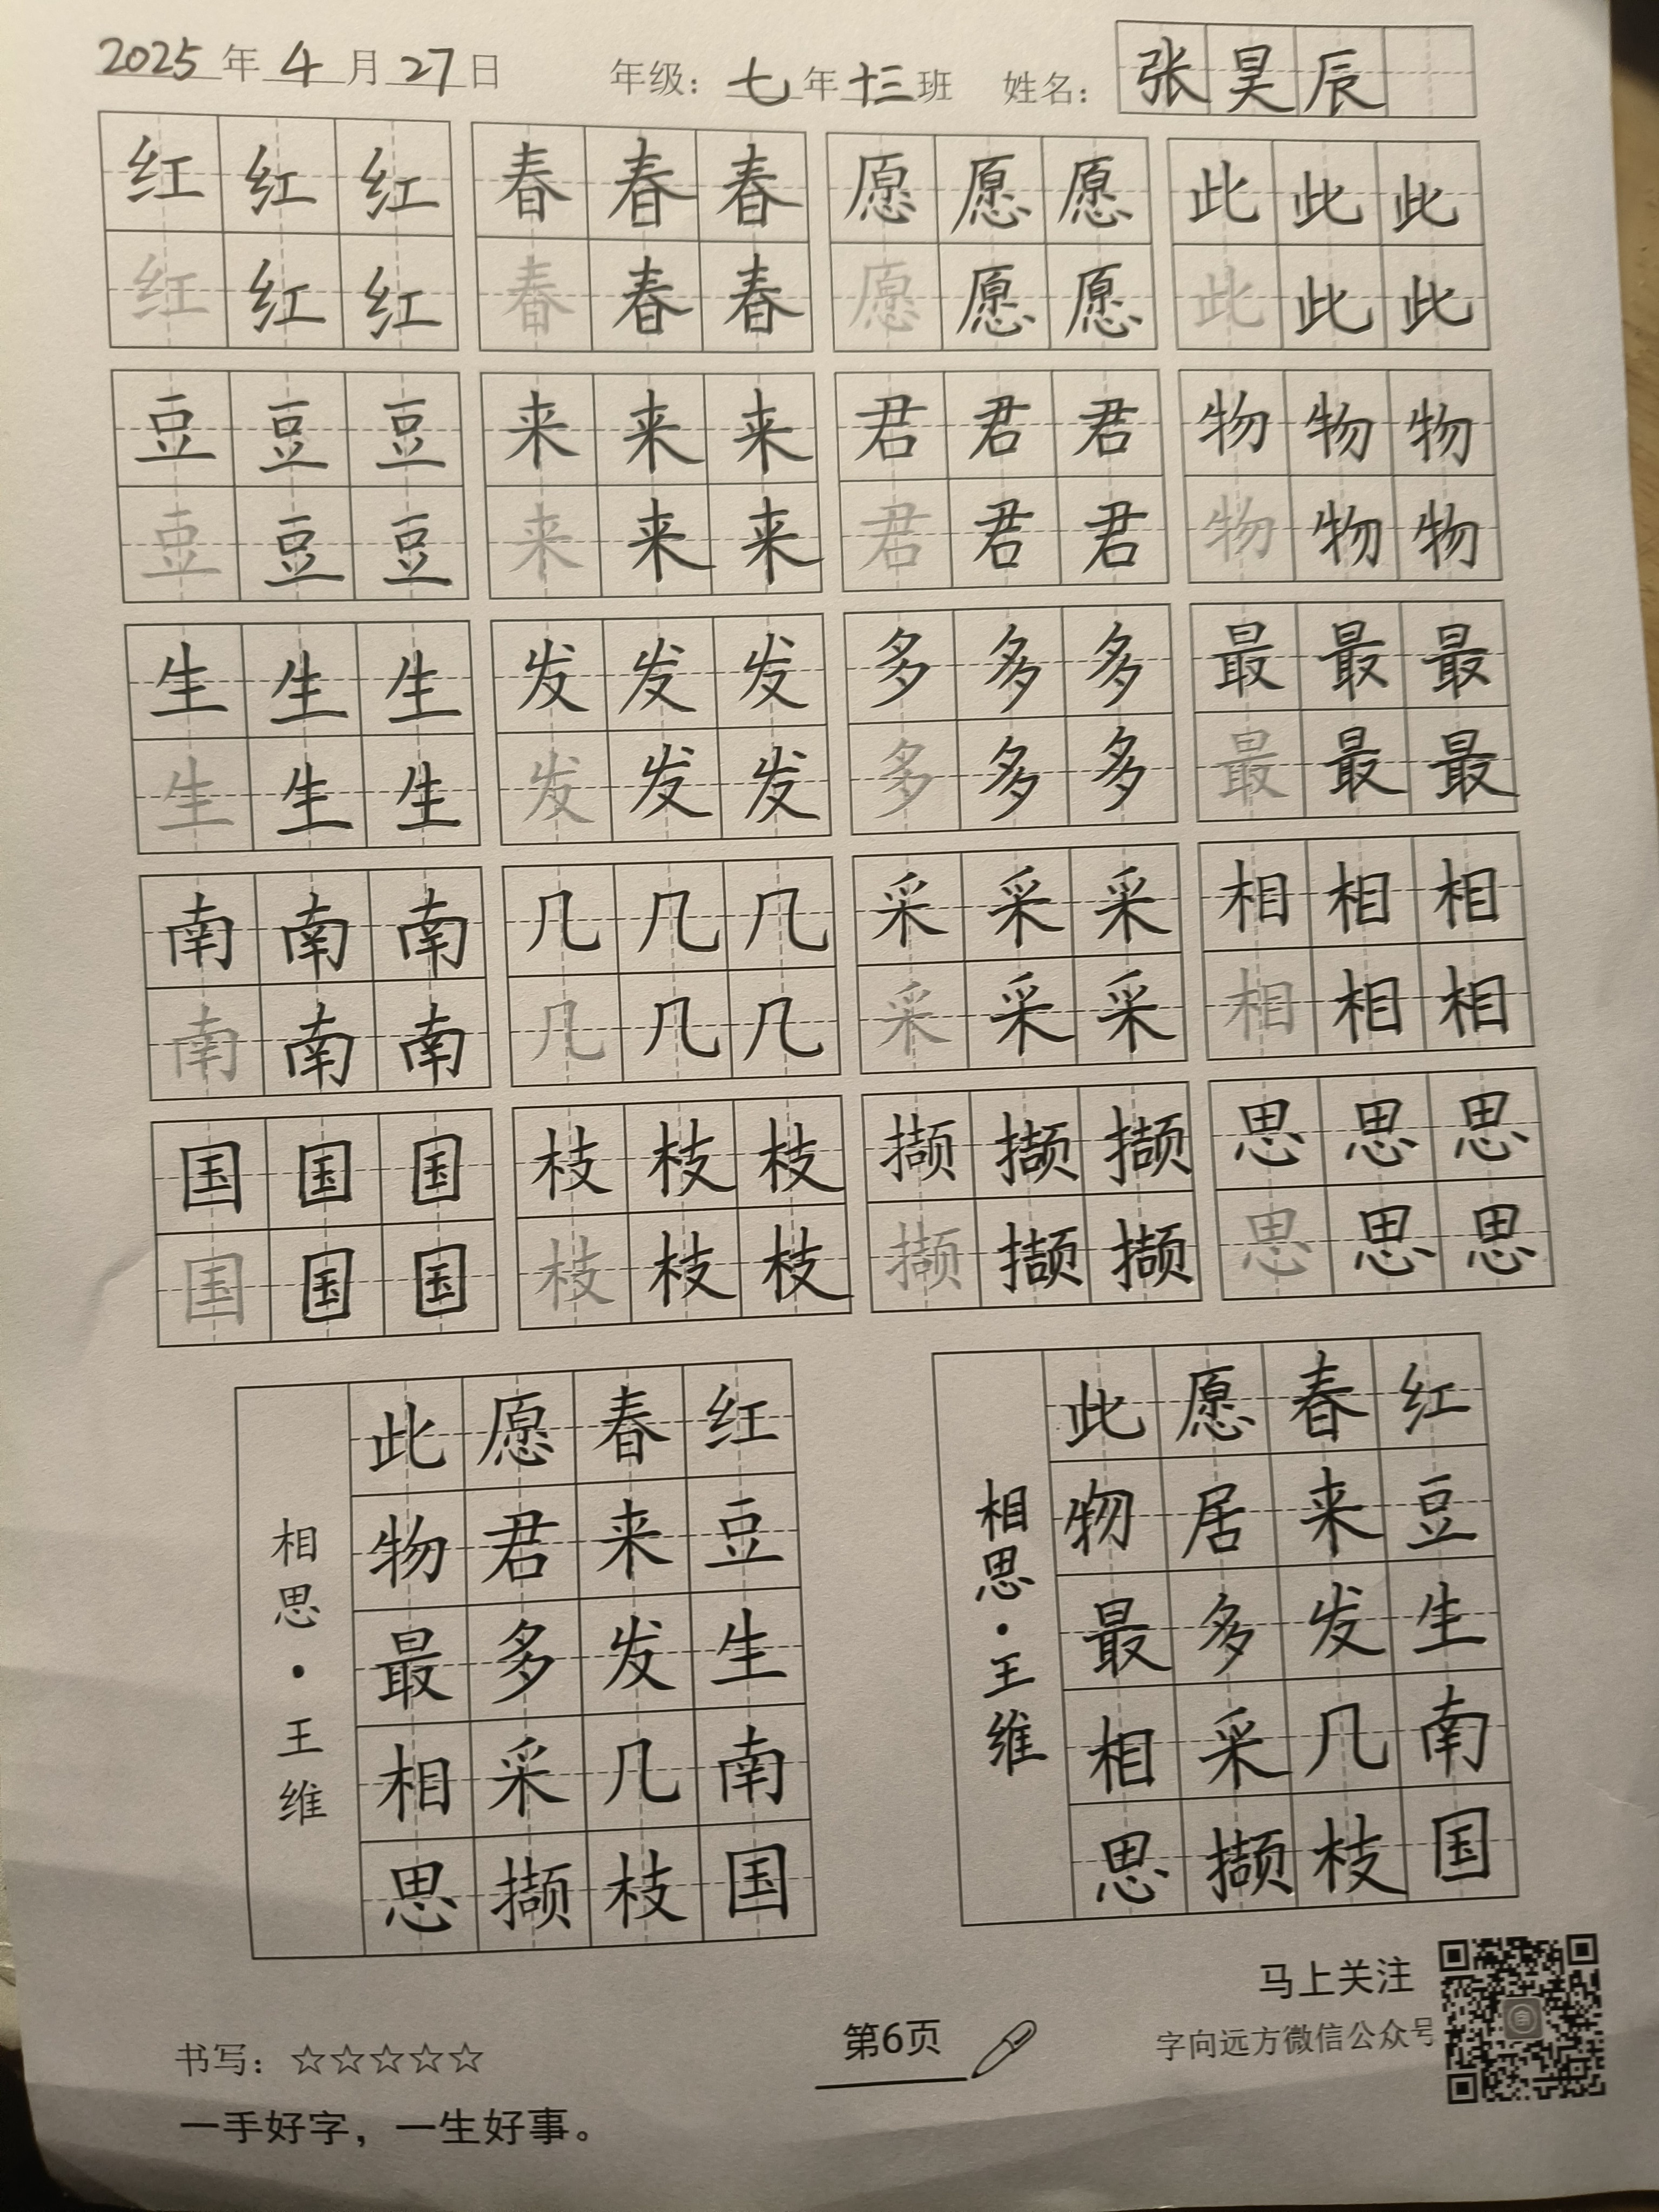 2025年4月27日 年级：七年十三班 姓名：张昊辰
红红红 春春春 愿愿愿 此此此
红红红 春春春 愿愿愿 此此此
豆豆豆 来来来 君君君 物物物
豆豆豆 来来来 君君君 物物物
生生生 发发发 多多多 最最最
生生生 发发发 多多多 最最最
南南南 几几几 采采采 相相相
南南南 几几几 采采采 相相相
国国国 枝枝枝 撷撷撷 思思思
国国国 枝枝枝 撷撷撷 思思思
红豆生南国
春来发几枝
愿君多采撷
此物最相思
相思·王维
红豆生南国
春来发几枝
愿居多采撷
此物最相思
相思·王维
书写：☆☆☆☆☆
一手好字，一生好事。
第6页
马上关注
字向远方微信公众号